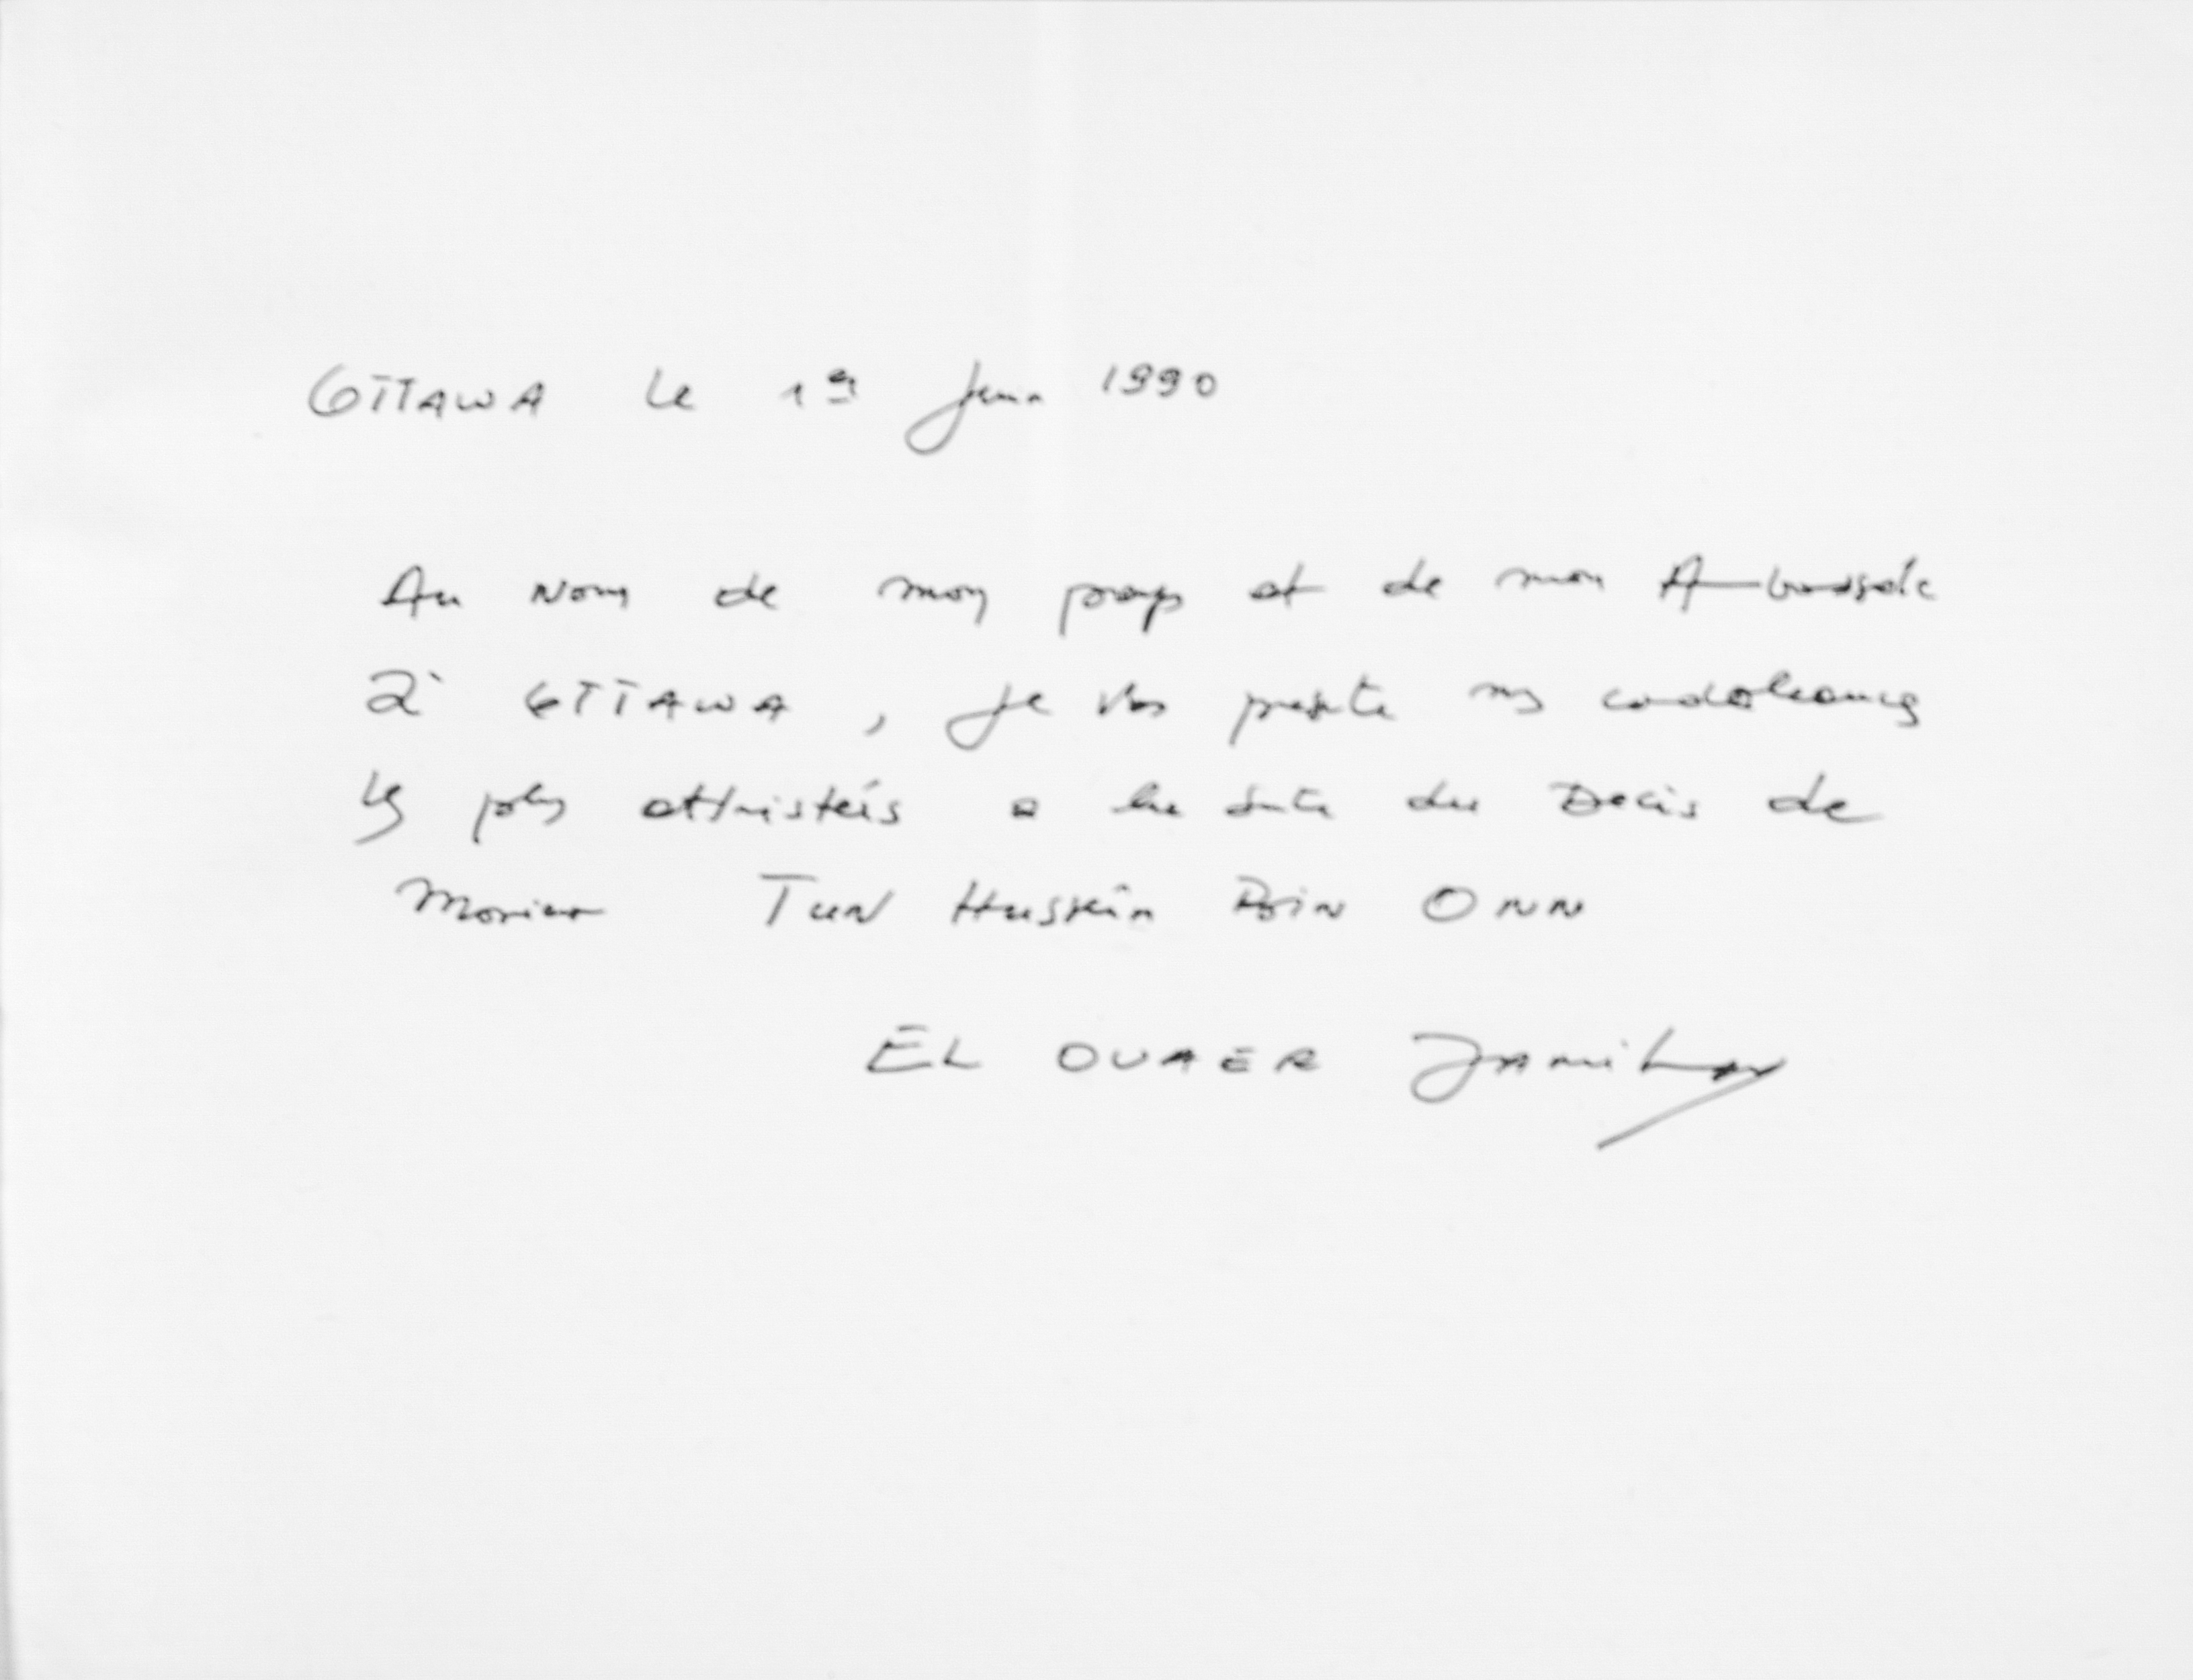 OTTAWA le 1er Juin 1990
Au Nom de mon pays et de mon Ambassade
à OTTAWA, je vous présente mes condoléances
les plus attristés a la suite du Décis de
Monsieur TUN Hussein Bin ONN
EL OUAER Jamil